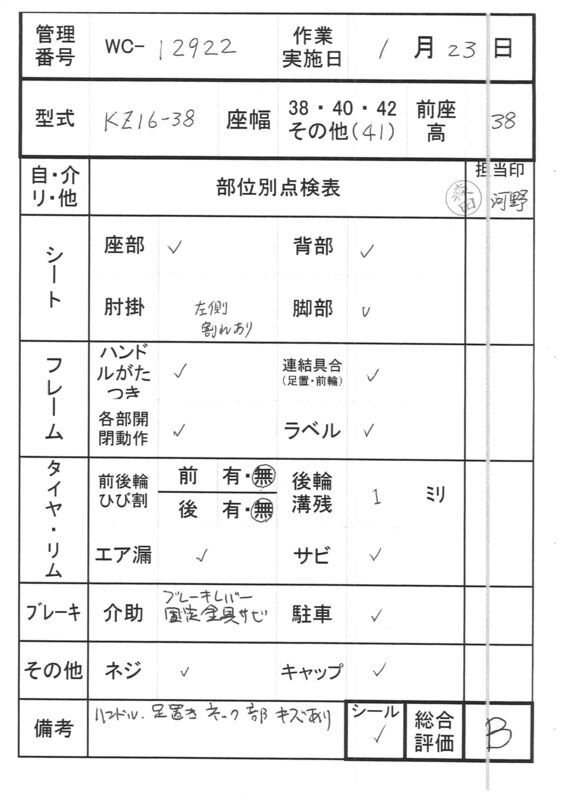 管理番号 WC- 12922 作業実施日 1月23日
型式 KZ16-38 座幅 38・40・42 その他(41) 前座高 38
自・介リ・他 部位別点検表 担当印 森田 河野
シート 座部 ✓ 背部 ✓
肘掛 左側割れあり 脚部 ✓
フレーム ハンドルがたつき ✓ 連結具合(足置・前輪) ✓
各部開閉動作 ✓ ラベル ✓
タイヤ・リム 前後輪ひび割 前 有・無 後輪溝残 1 ミリ
後 有・無
エア漏 ✓ サビ ✓
ブレーキ 介助 ブレーキレバー固定金具サビ 駐車 ✓
その他 ネジ ✓ キャップ ✓
備考 ハンドル.足置きネーク部キズあり シール ✓ 総合評価 B